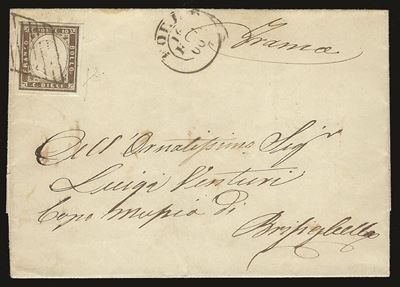 FRANCO
BOLLO
C. DIECI
FORLI
Franca
All'Ornatissimo Sigr
Luigi Venturi
Capo Musica di
Brisighella